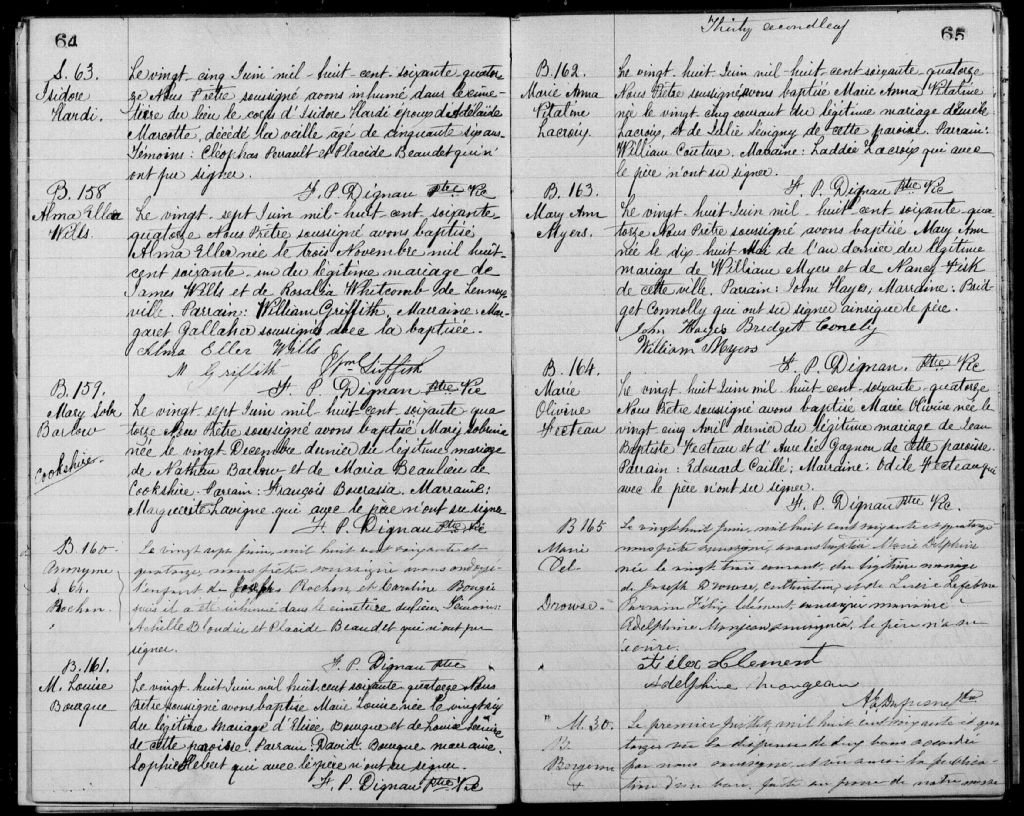 64
S. 63.
Isidore
Hardi.
Le vingt-cinq Juin mil-huit-cent-soixante quator-
ze Nous Prêtre soussigné avons inhumé dans le cime-
tière du lieu le corps d'Isidore Hardi époux d'Adélaïde
Marcotte, décédé la veille âgé de cinquante six ans.
Témoins: Cléophas Perrault et Placide Beaudet qui n'
ont pu signer.
F. P. Dignan Ptre Vic
B. 158
Alma Ellen
Wills.
Le vingt-sept Juin mil-huit-cent-soixante
quatorze Nous Prêtre soussigné avons baptisé
Alma Eller née le trois Novembre mil huit-
cent soixante-un du légitime mariage de
James Wills et de Rosalia Whitcomb de Lennox-
ville. Parrain: William Griffith, Marraine: Mar-
garet Gallaher soussigné avec la baptisée.
Alma Eller Wills
M Griffith Wm Griffith
F. P. Dignan Ptre Vic
B. 159.
Mary Sobr
Barlow
Cookshire.
Le vingt-sept Juin mil-huit-cent-soixante qua
torze Nous Prêtre soussigné avons baptisé Mary Sobrina
née le vingt Decembre dernier du légitime mariage
de Nathan Barlow et de Maria Beaulieu de
Cookshire. Parrain: François Bourassa. Marraine:
Marguerite Lavigne qui avec le père n'ont su signer
F. P. Dignan Ptre Vic
B. 160
Anonyme
S. 64.
Rochon.
Le vingt sept Juin, mil huit cent soixante et
quatorze, nous prêtre soussigné avons ondoyé
l'enfant de Joseph Rochon, et Caroline Bougie
puis il a été inhumé dans le cimetière du lieu. Témoins:
Achille Blondin et Placide Beaudet qui n'ont pu
signer.
F. P. Dignan Ptre
B. 161.
M. Louise
Bourque
Le vingt-huit Juin mil huit cent soixante-quatorze Nous
Prêtre soussigné avons baptisé Marie Louise née le vingt six
du légitime mariage d'Elisée Bourque et de Louise
de cette paroisse. Parrain: David Bourque marraine
Sophie Hebert qui avec le père n'ont su signer.
F. P. Dignan Ptre Vic
Thirty second leaf
65
B. 162.
Marie Anna
Vitaline
Lacroix.
Le vingt huit Juin mil-huit-cent-soixante-quatorze
Nous Prêtre soussigné avons baptisé Marie Anna Vitaline
née le vingt-cinq courant du légitime mariage d'Eusèbe
Lacroix, et de Julie Sévigny de cette paroisse. Parrain:
William Couture. Marraine: Laddée Lacroix qui avec
le père n'ont su signer.
F. P. Dignan Ptre Vic
B. 163.
Mary Ann
Myers.
Le vingt huit Juin mil-huit-cent-soixante qua
torze Nous Prêtre soussigné avons baptisé Mary Ann
née le dix-huit Mai de l'an dernier du légitime
mariage de William Myers et de Nancy Fisk
de cette ville. Parrain: John Hayes, Marraine: Brid-
get Connolly que ont su signer ainsi que le père.
John Hayes Bridgett Conely
William Myers
F. P. Dignan. Ptre Vic
B. 164.
Marie
Olivine
Fecteau
Le vingt huit Juin mil huit cent soixante-quatorze
Nous Prêtre soussigné avons baptisé Marie Olivine née le
vingt cinq Avril dernier du légitime mariage de Jean
Baptiste Fecteau et d'Aurelie Gagnon de cette paroisse.
Parrain: Edouard Caille; Marraine: Odile Fecteau qui
avec le père n'ont su signer.
F. P. Dignan Ptre Vic.
B 165
Marie
Del
Drowse.
Le vingt huit Juin, mil huit cent soixante et quatorze
nous prêtre soussigné, avons baptisé Marie Delphine
née le vingt trois courant, du légitime mariage
de Joseph Drowse, cultivateur, et de Louise Lefebvre
Parrain Félix Clément, marraine
Adelphine Monjeau soussignés, le père n'a su
écrire.
Félix Clement
Adelphine Mongeau
A E Dufresne Ptre
M. 30.
B.
Bergeron
Le premier Juillet, mil huit cent soixante et qua
torze vu la dispense de deux bans accordée
par nous soussigné, et vu aussi la publica-
tion d'un ban, faite au prone de notre messe